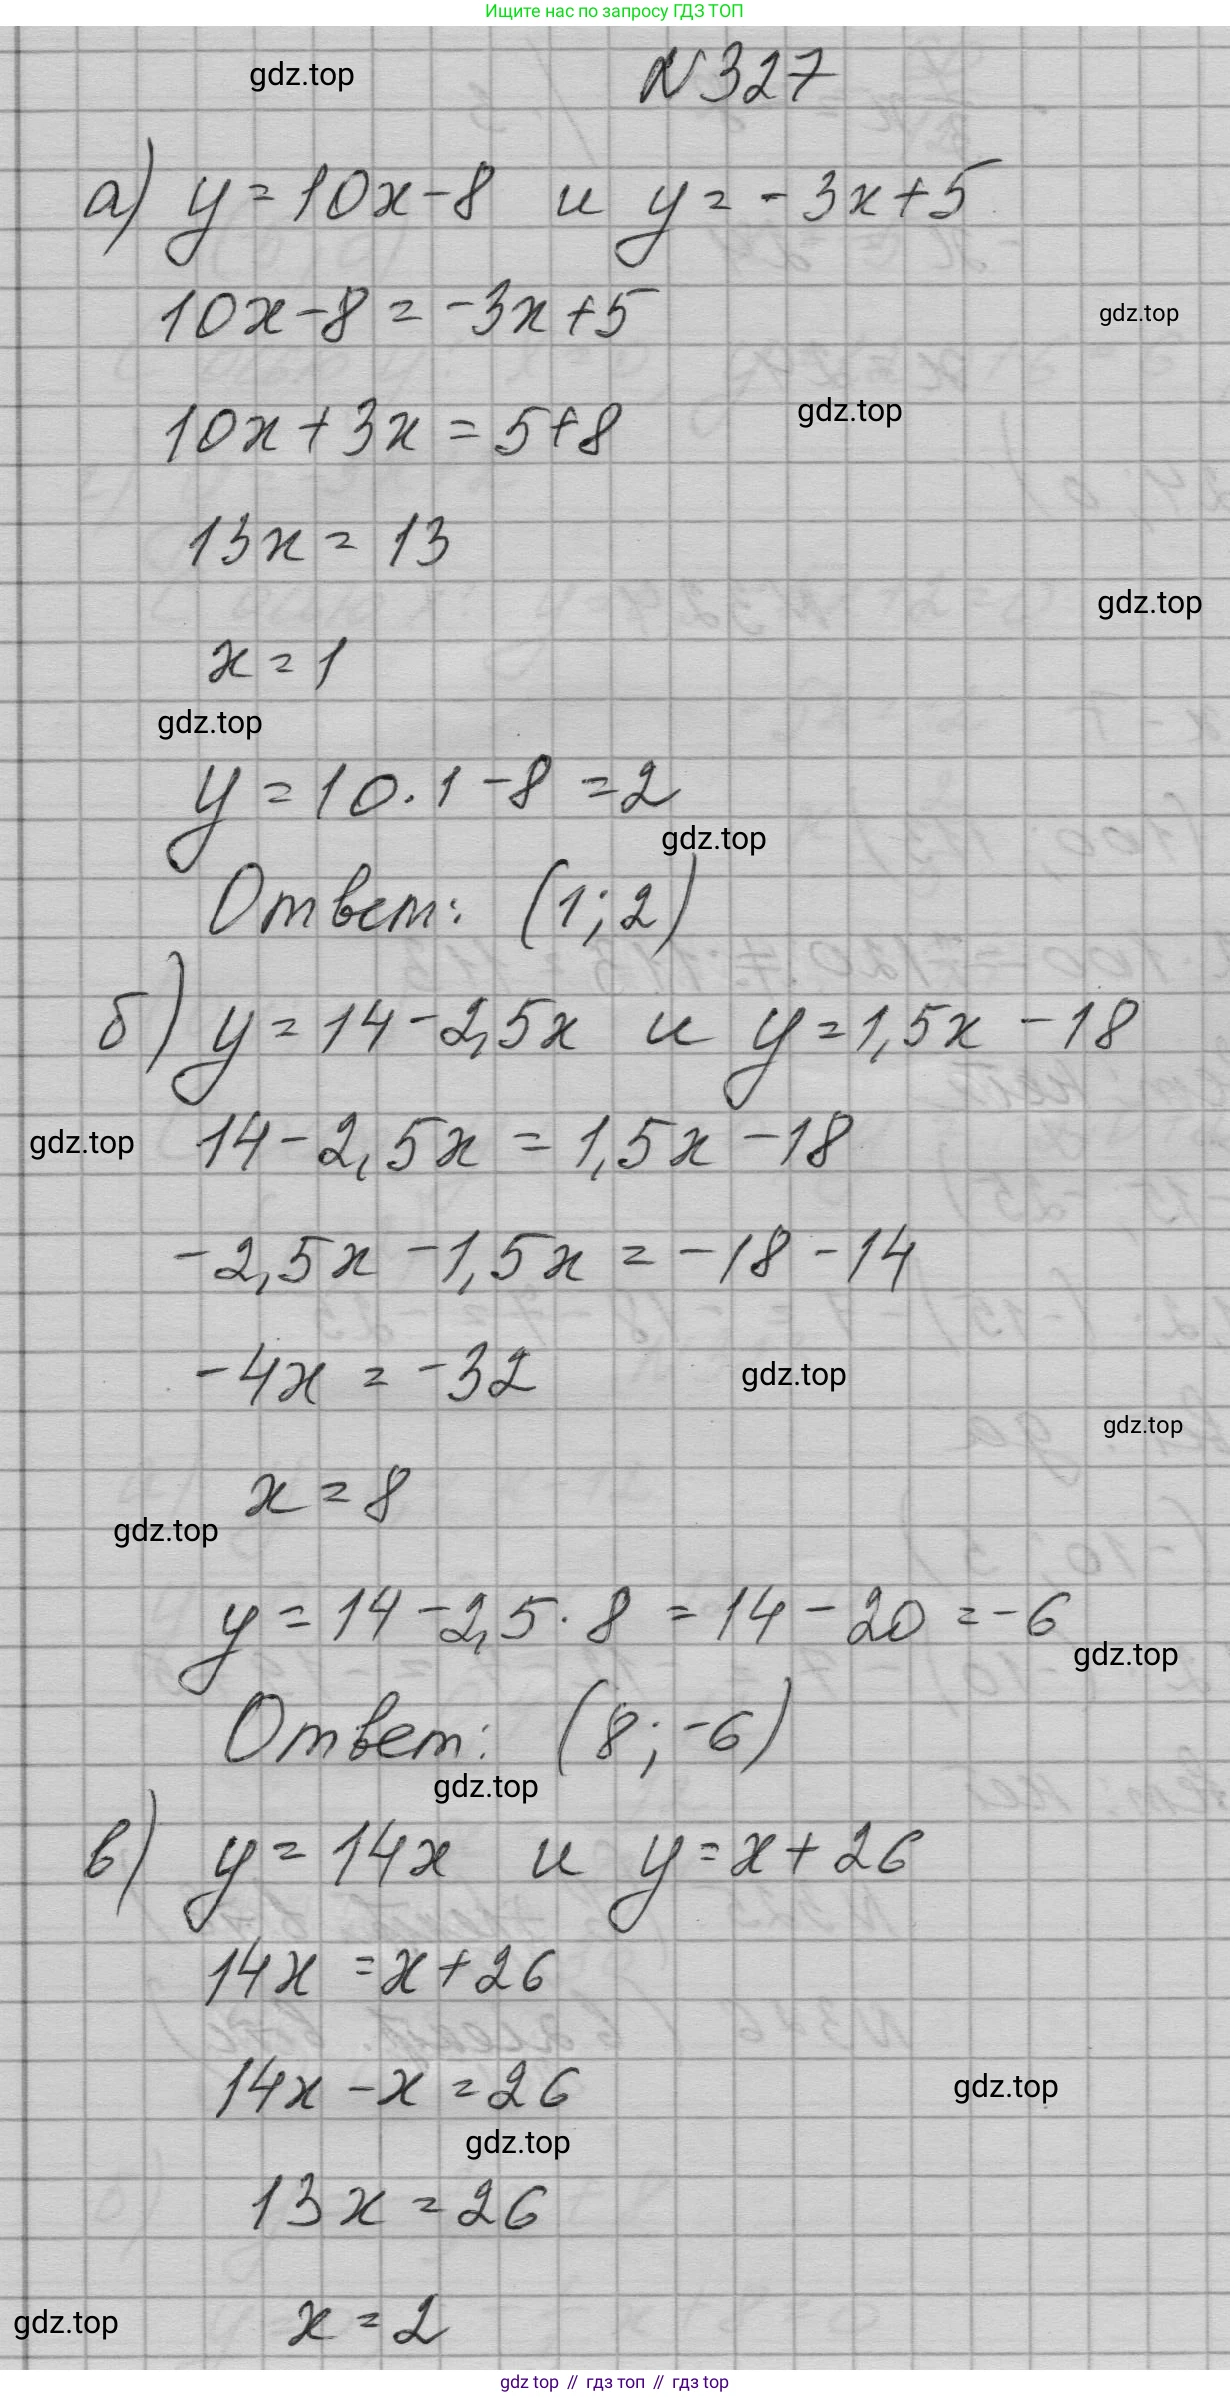 Ищите нас по запросу ГДЗ ТОП
gdz.top
N327
а) y = 10x - 8 и y = - 3x + 5
10x - 8 = -3x + 5
gdz.top
10x + 3x = 5 + 8
gdz.top
13x = 13
gdz.top
x = 1
gdz.top
y = 10 · 1 - 8 = 2
gdz.top
Ответ: (1; 2)
б) y = 14 - 2,5x и y = 1,5x - 18
gdz.top
14 - 2,5x = 1,5x - 18
-2,5x - 1,5x = -18 - 14
-4x = -32
gdz.top
gdz.top
x = 8
gdz.top
y = 14 - 2,5 · 8 = 14 - 20 = -6
gdz.top
Ответ: (8; -6)
gdz.top
в) y = 14x и y = x + 26
14x = x + 26
14x - x = 26
gdz.top
gdz.top
13x = 26
gdz.top
x = 2
gdz top // гдз топ // гдз top